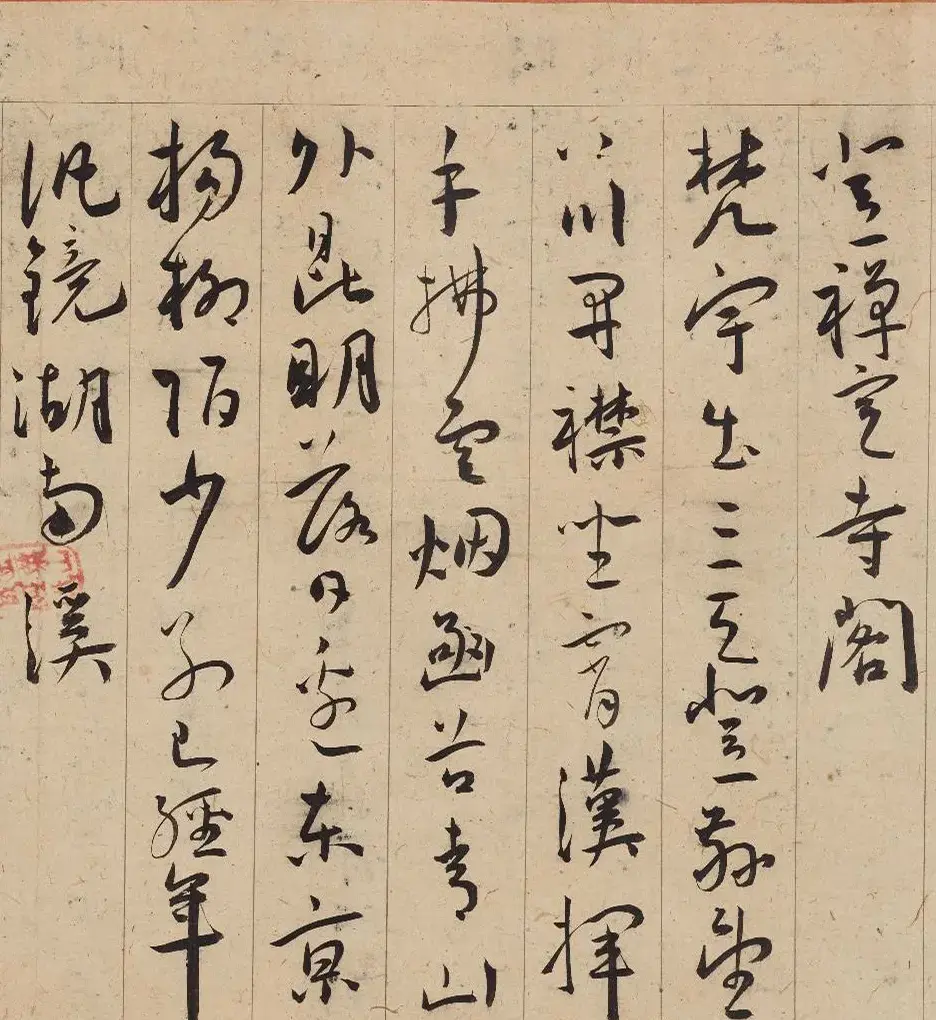 登禪定寺閣
梵宇出三天登臨望
八川開襟坐霄漢揮
手拂雲烟函谷青山
外昆明落日邊東京
楊柳陌少別已經年
泛鏡湖南溪